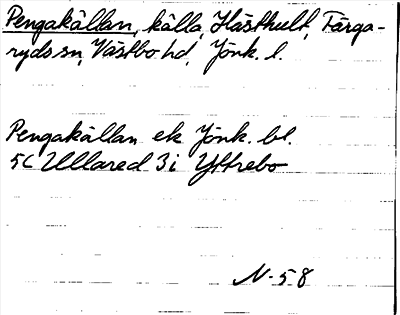 Pengakällan, källa, Hästhult, Färga-
ryds sn, Västbo hd, Jönk. l.
Pengakällan ek Jönk. bl.
5C Ullared 3i Yttrebo
N-58